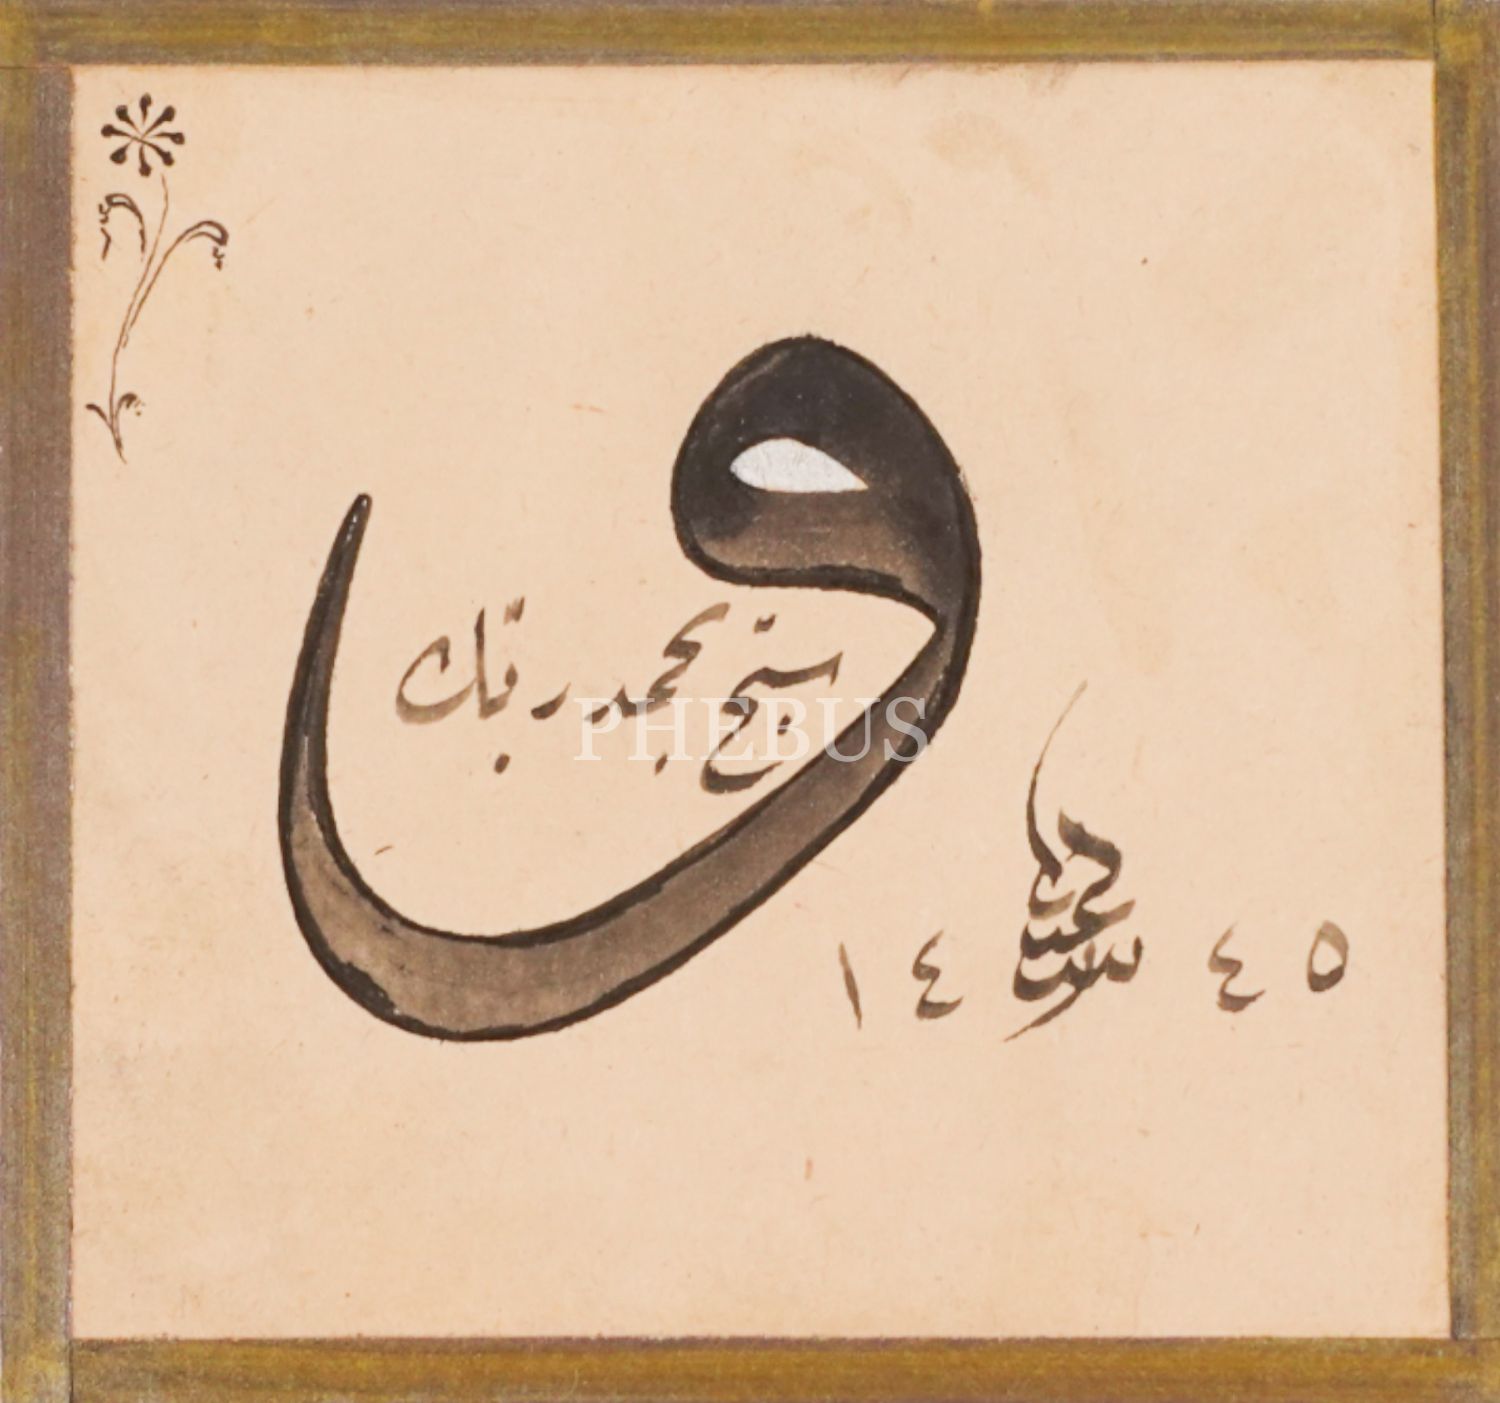 و
سبّح بحمد ربّك
PHEBUS
١٤ ٤٥